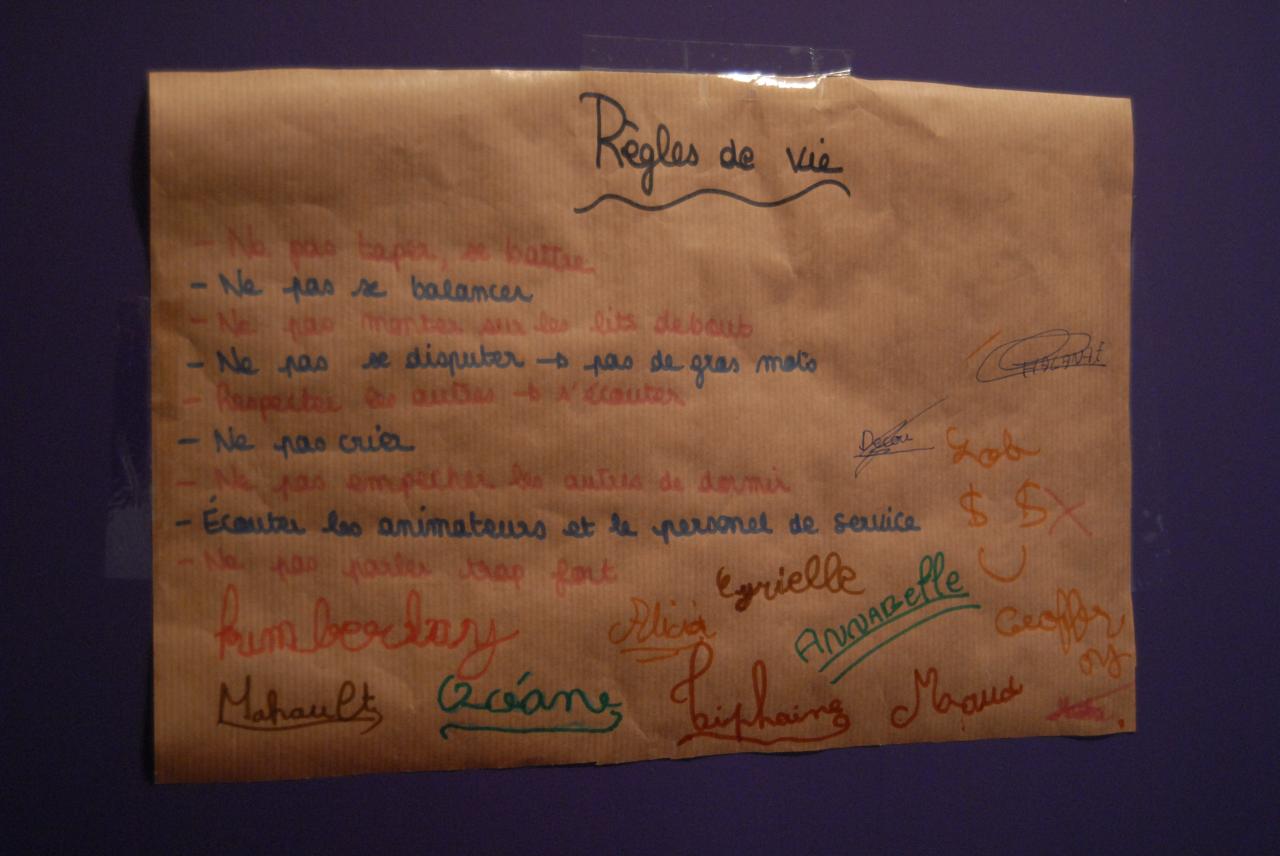 Règles de vie
- Ne pas taper, se battre
- Ne pas se balancer
- Ne pas monter sur les lits debout
- Ne pas se disputer → pas de gros mots
- Respecter les autres → s'écouter
- Ne pas crier
- Ne pas empêcher les autres de dormir
- Écouter les animateurs et le personel de service
- Ne pas parler trop fort
$ $
Cyrielle
Alicia
ANNABElle
Geoffroy
Mahault
Océane
Tiphaine
Maud